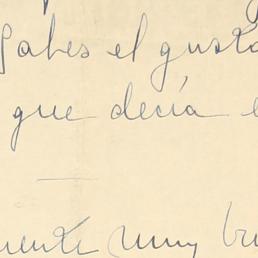 Sabes el gusto
que decía e
uente muy bu